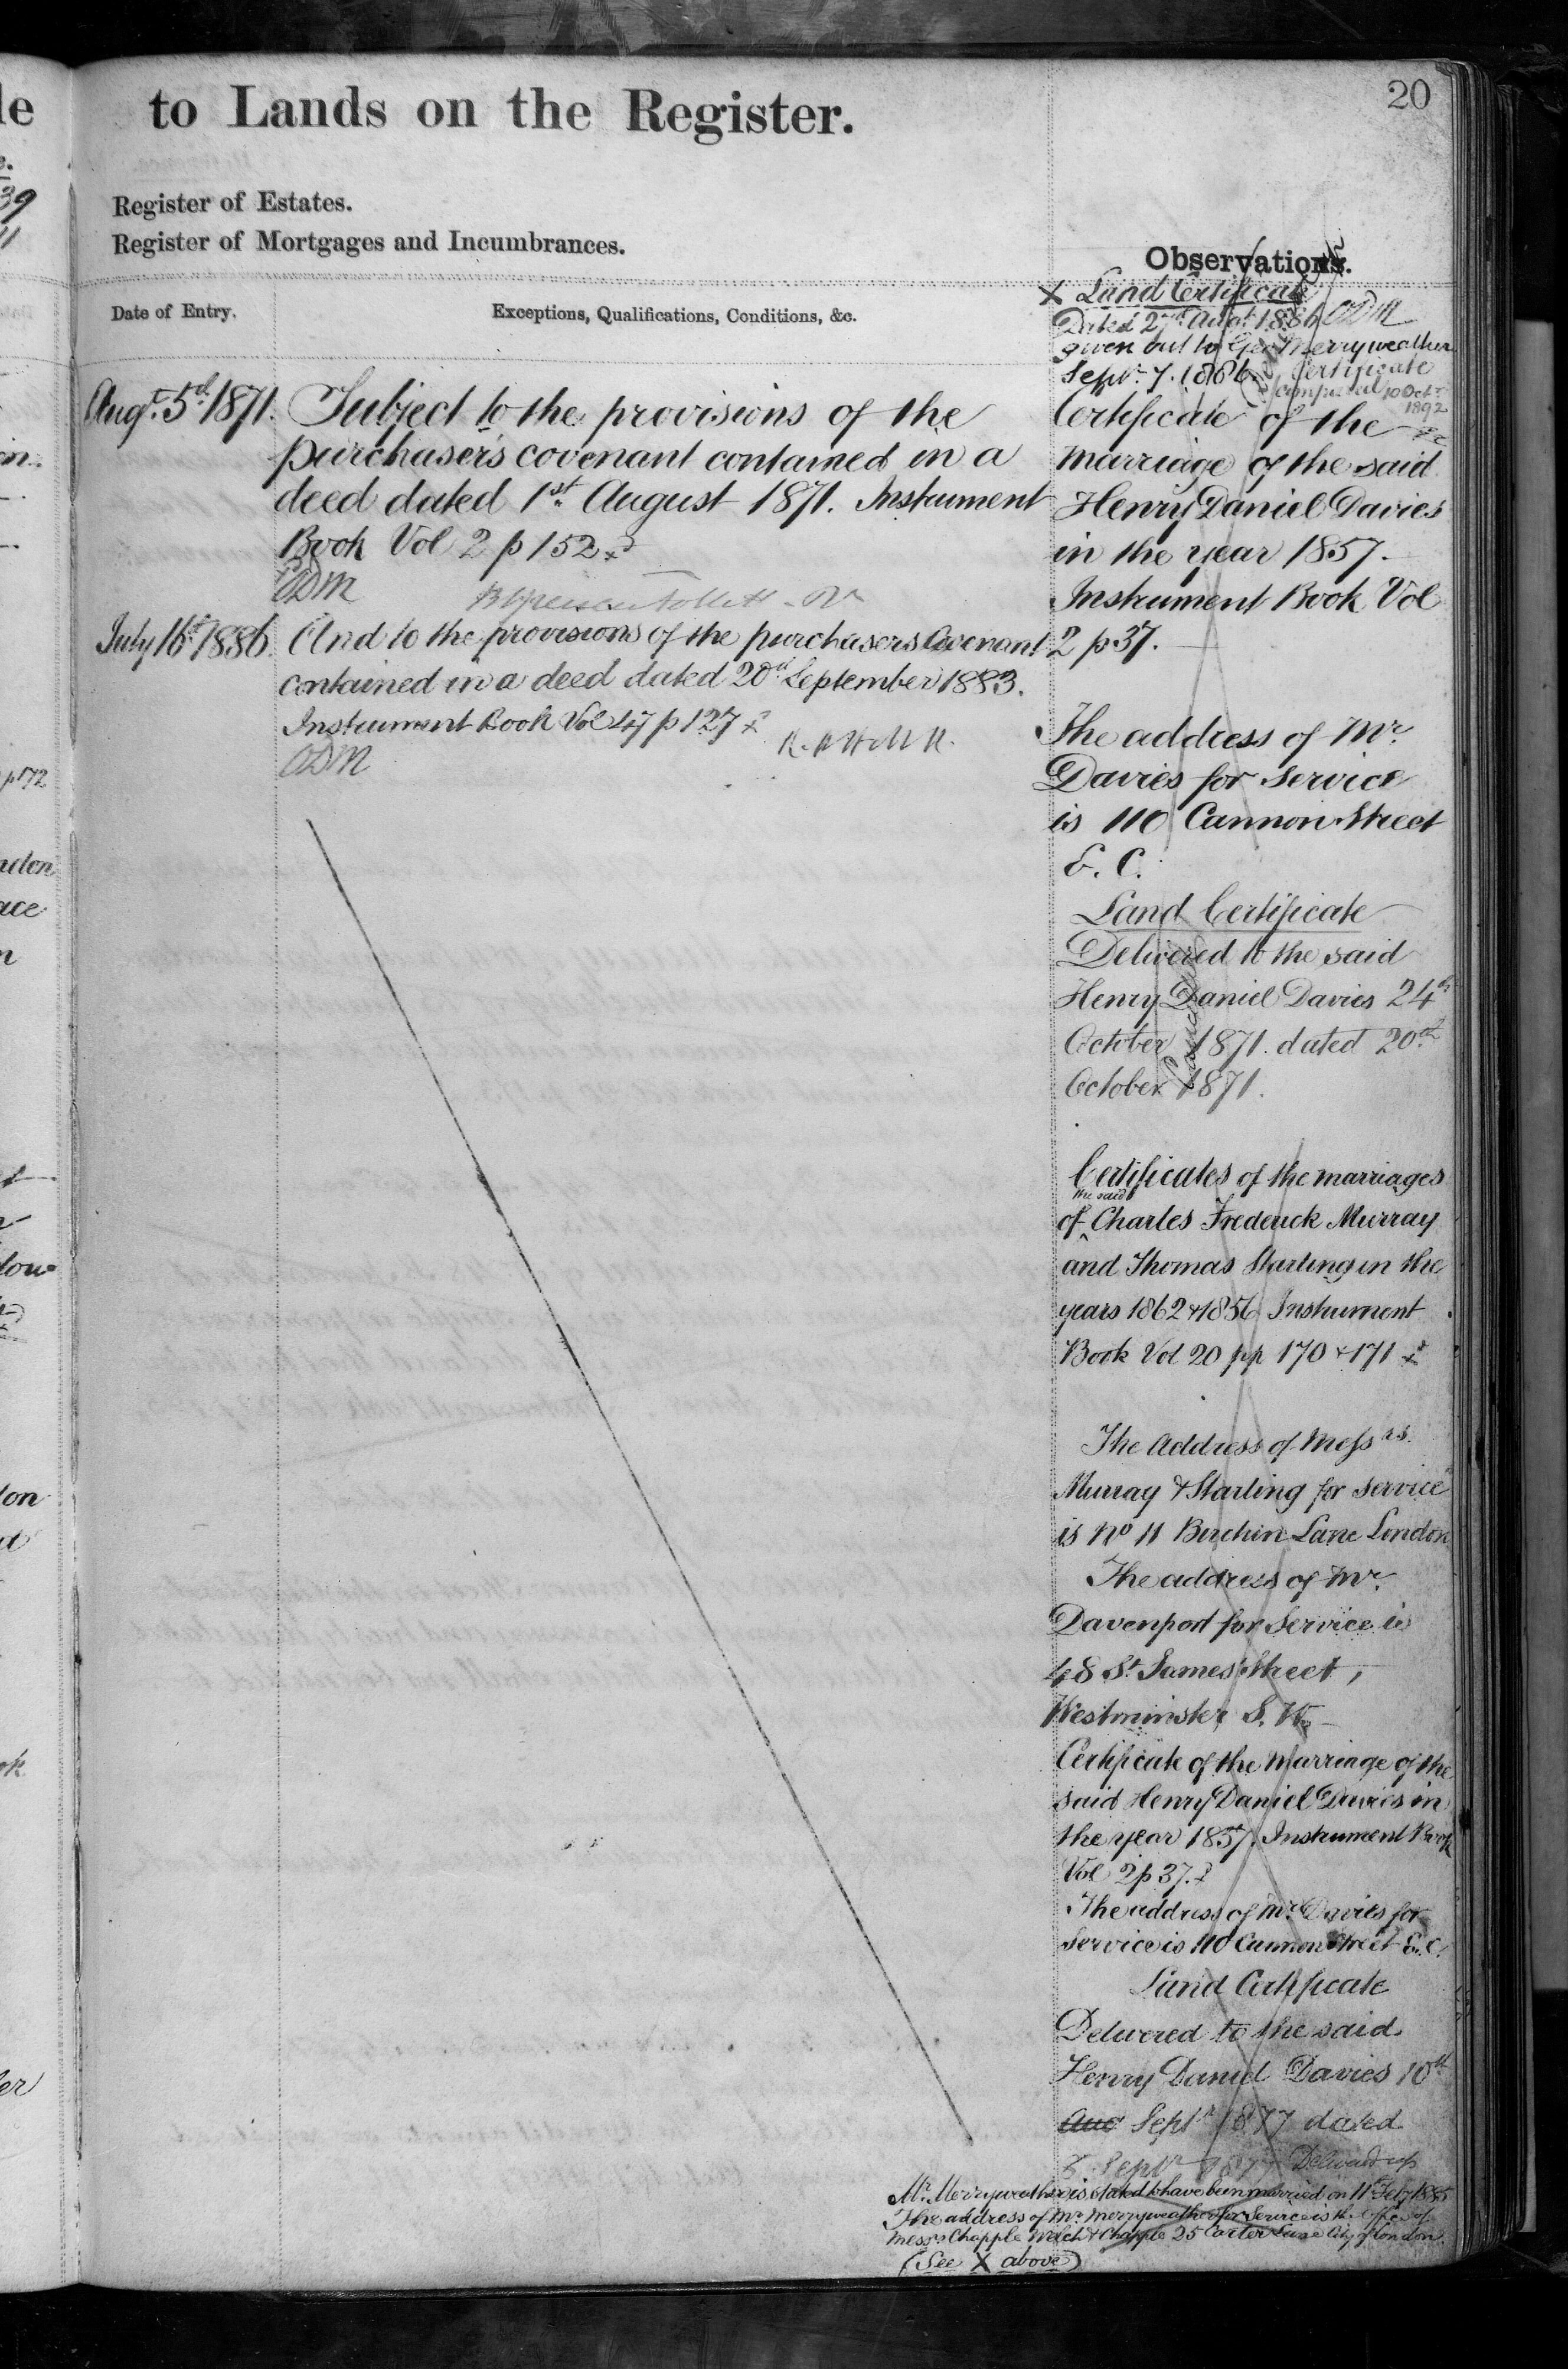 20
to Lands on the Register.
Register of Estates.
Register of Mortgages and Incumbrances.
Date of Entry.
Exceptions, Qualifications, Conditions, &c.
Augt. 5th 1871.
Subject to the provisions of the
purchaser's covenant contained in a
deed dated 1st August 1871. Instrument
Book Vol 2 p 152
ODM
July 16th 1886.
And to the provisions of the purchasers Covenant
contained in a deed dated 20th September 1883.
Instrument Book Vol 47 p 127
ODM
Observations.
X Land Certificate
Dated 27th Augt. 1886 ODM
given out to Geo Merryweather
Septr. 7. 1886
Certificate
compared 10 Octr.
1892
Certificate of the
marriage of the said
Henry Daniel Davies
in the year 1857.
Instrument Book Vol
2 p 37.
The address of Mr.
Davies for service
is 110 Cannon Street
E. C.
Land Certificate
Delivered to the said
Henry Daniel Davies 24th
October 1871. dated 20th
October 1871.
Cancelled
Certificates of the marriages
the said
of Charles Frederick Murray
and Thomas Starling in the
years 1862 & 1856 Instrument
Book Vol 20 pp 170 & 171
The Address of Messrs.
Murray & Starling for service
is No 11 Birchin Lane London
The address of Mr.
Davenport for Service is
48 St. James' Street,
Westminster S. W.
Certificate of the Marriage of the
said Henry Daniel Davies in
the year 1857. Instrument Book
Vol 2 p 37.
The address of Mr. Davies for
Service is 110 Cannon Street E.C.
Land Certificate
Delivered to the said
Henry Daniel Davies 10th
Aug Septr 1877 dated
Septr 1877 Delivered up
Mr. Merryweather is stated to have been married on 11th Feby 1885
The address of Mr. Merryweather for Service is the Office of
Messrs Chapple Welch & Chapple 25 Carter Lane City of London.
(See X above)